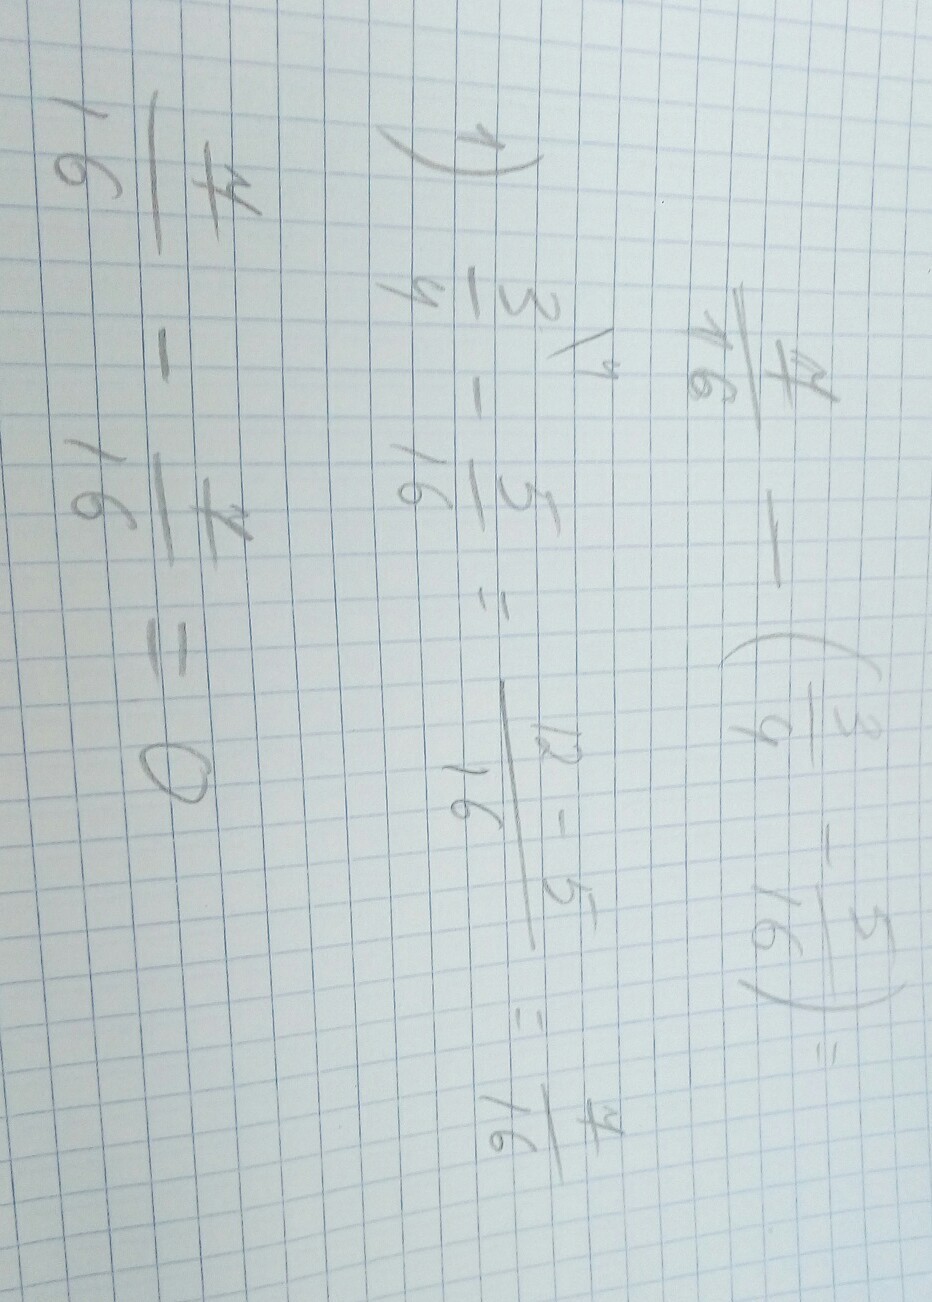 7/16 - (3/4 - 5/16) =
1) 3/4 \4 - 5/16 = (12 - 5)/16 = 7/16
7/16 - 7/16 = 0